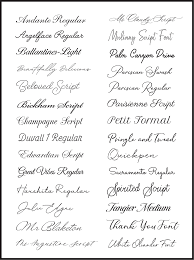 Andante Regular
Angelface Regular
Ballantines-Light
Beautifully Delicious
Beloved Script
Bickham Script
Champagne Script
Duvall 1 Regular
Edwardian Script
Great Vibes Regular
Harshita Regular
Julie Elyse
Mr. Blaketon
Mr Cloudy Script
Mulberry Script Font
Palm Canyon Drive
Parisian Sunrich
Persian Regular
Parisienne Script
Petit Formal
Pringle and Tweed
Quickpen
Sacramento Regular
Spirited Script
Tangier Medium
Thank You Font
White Oleander Font